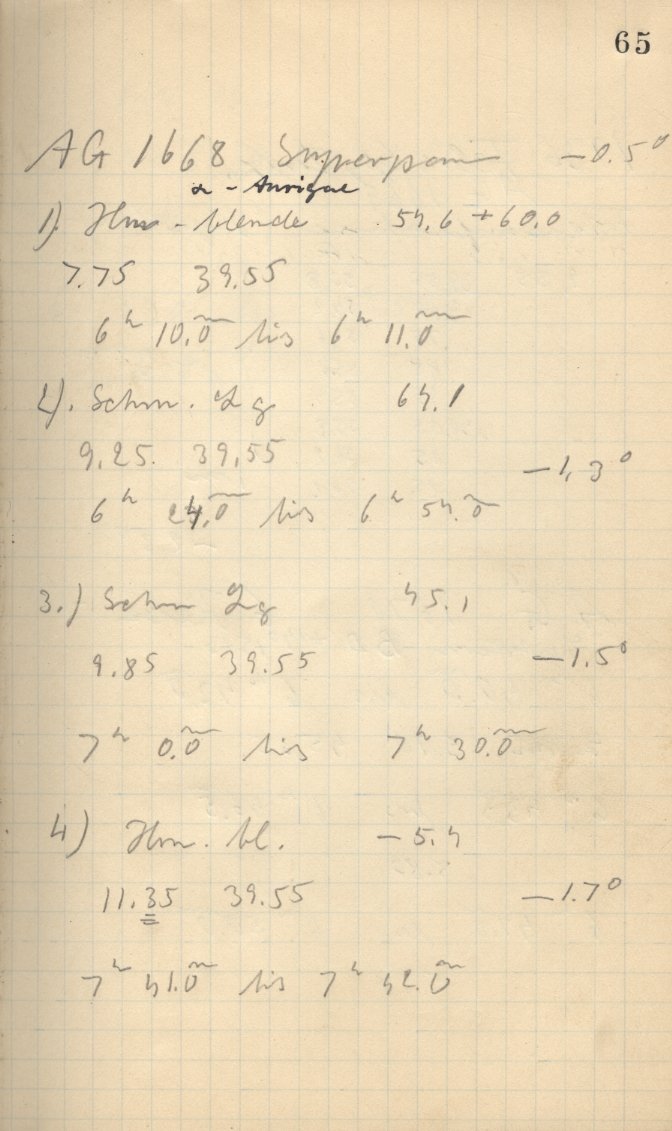 65
AG 1668 Superpan — -0.5°
α - Aurigae
1) Hm - blende 54.6 + 60.0
7.75 39.55
6h 10.0m bis 6h 11.0m
2). Schm. Lg 64.1
9.25. 39.55
-1.3°
6h 24.0m bis 6h 54.0m
3.) Schm Lg 45.1
9.85 39.55 -1.5°
7h 0.0m bis 7h 30.0m
4) Hm. bl. -5.4
11.35 39.55 -1.7°
7h 41.0m bis 7h 42.0m